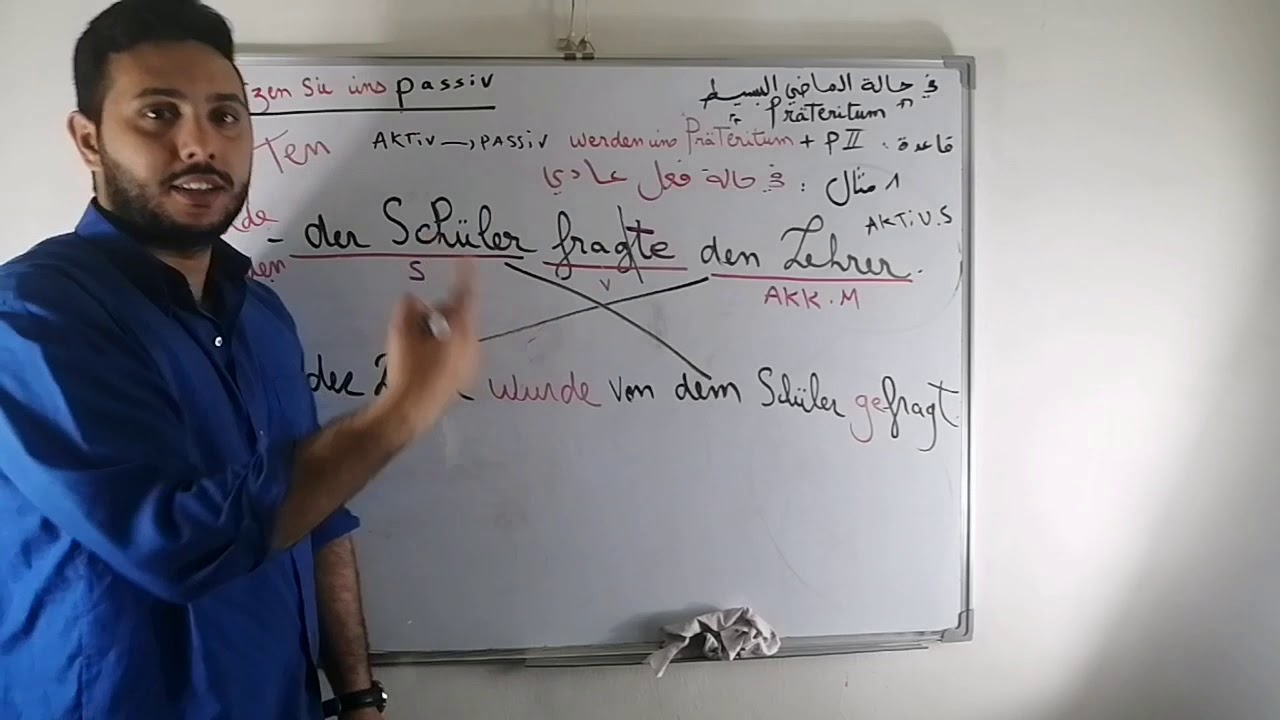 zen Sie ins passiv
في حالة الماضي البسيط
Präteritum
Ten AKTiV → PASSiV werden ins Präteritum + P II قاعدة :
في حالة فعل عادي : مثال 1
AKTiV.S
de - der Schüler fragte den Lehrer.
en S V AKK.M
der wurde von dem Schüler gefragt.